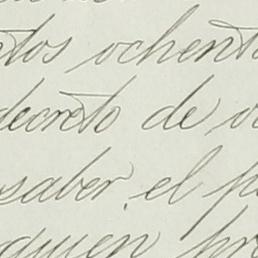 tos ochent
decreto de
saber, el
quien pr